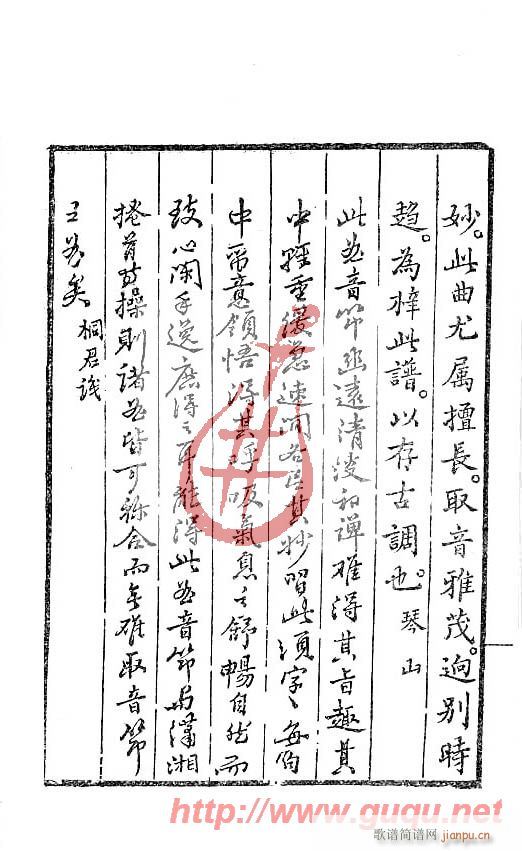 妙。此曲尤属擅長。取音雅茂。迥別時
趨。為梓此譜。以存古調也。琴山
此曲音節幽遠清淩和譚难得其旨趣其
中輕重緩急速间各臣其妙習此須字〻每句
中需意領悟得其呼吸氣息之舒暢自然而
玅心閑手逸庶得之耳能得此曲音節与瀟湘
捲首与操則諸曲皆可融會而無难取音節
之曲矣 桐君識
http://www.guqu.net
歌谱简谱网
jianpu.cn